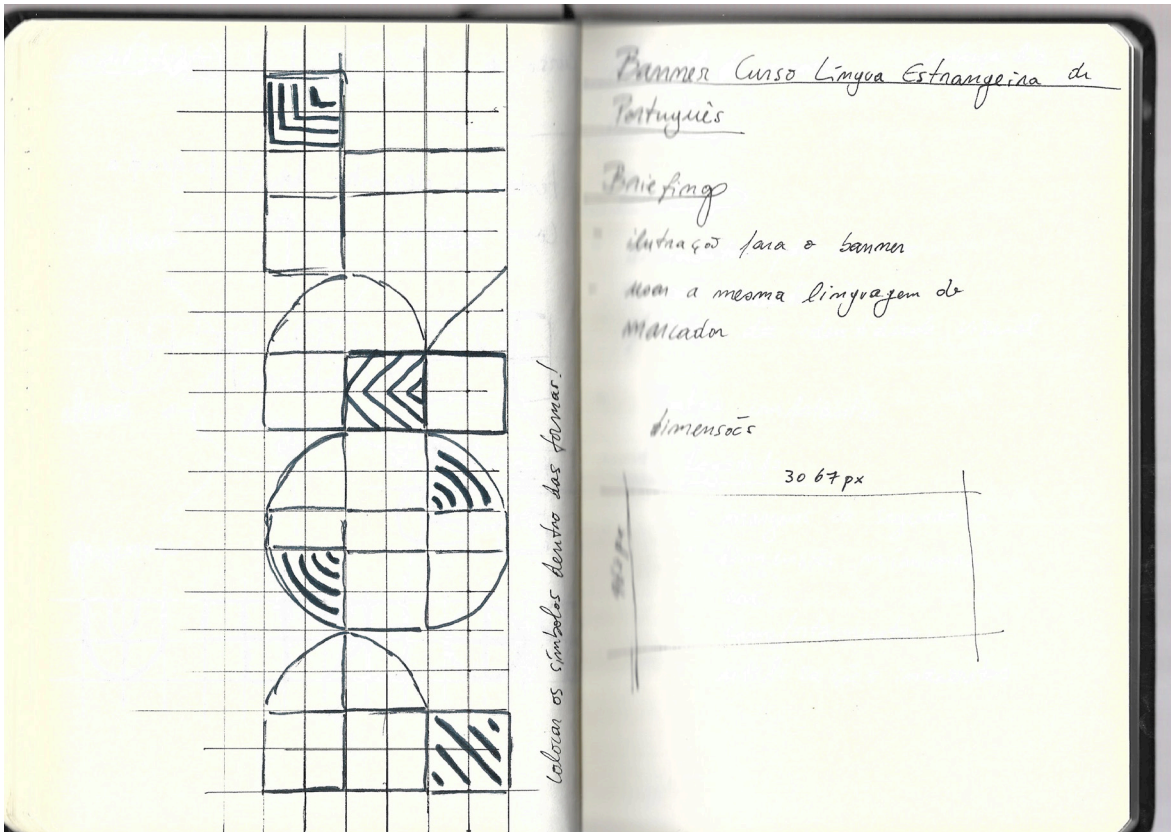 colocar os símbolos dentro das formas!
Banner Curso Língua Estrangeira de
Português
Briefing
ilutração para o banner
usar a mesma linguagem do
marcador
dimensões
3067px